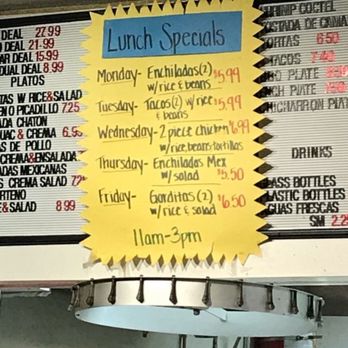 DEAL 22.99
DEAL 21.99
DEAL 15.99
DEAL 8.99
PLATOS
W RICE&SALAD
O PICADILLO 7.25
ADA CHATON
& CREMA
AS DE POLLO
CREMA&ENSALADA
ADAS MEXICANAS
CREMA SALAD
RTENO
E&SALAD 8.99
Lunch Specials
Monday- Enchiladas(2) $5.99
w/rice & beans
Tuesday- Tacos(2) w/rice $5.99
& beans
Wednesday- 2 piece chicken $6.99
w/rice, beans, tortillas
Thursday- Enchiladas Mex
w/ salad $5.50
Friday- Gorditas(2) $6.50
w/ rice & salad
11am-3pm
COCTEL
TOSTADA DE
ORTAS 6.50
TACOS
PLATE
PLATE
CHICHARRON PLAT
DRINKS
LASS BOTTLES
LASTIC BOTTLES
GUAS FRESCAS
SM 2.2